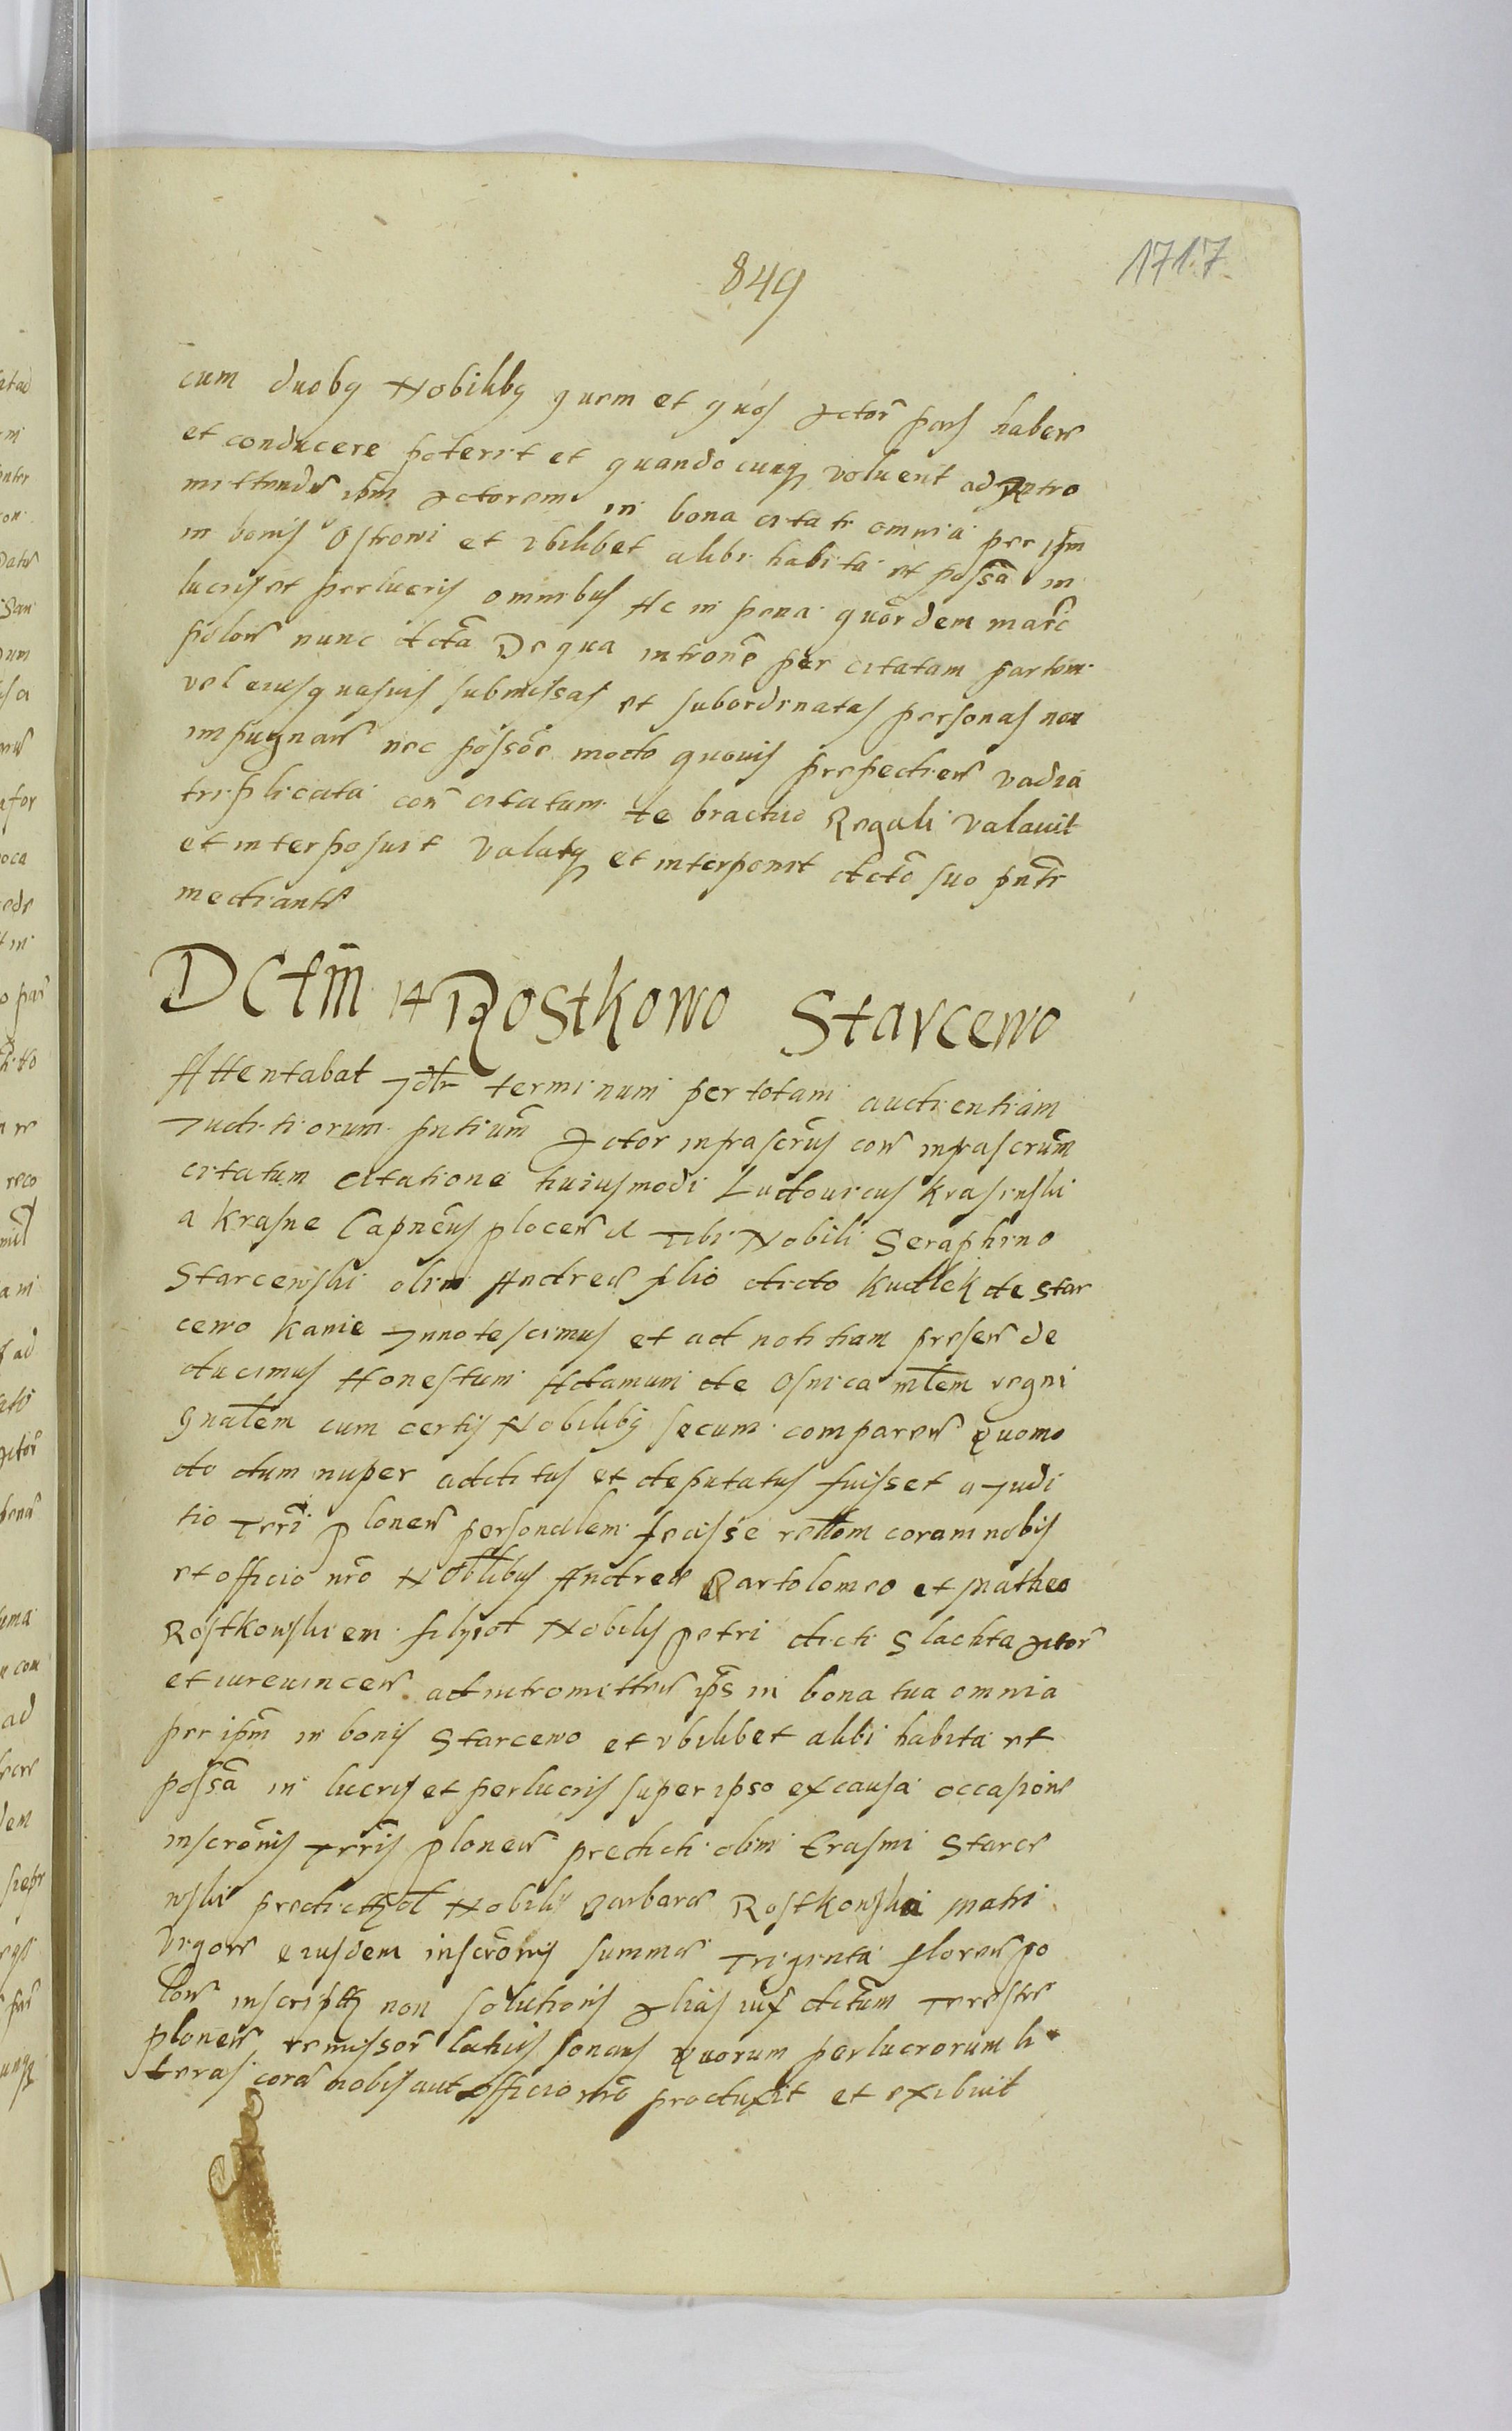 849
1717
cum duobq Nobilibq quem et quos Actor pars habere
et conducere poterit et quando cunq voluerit ad Intro
mittendu ipm Actorem in bona citati omnia per ipm
in bonis Ostrowi et vbilibet alibi habita et possa in
lucris et perlucris omnibus Ac in pena quordem marc
polon nunc dcta De qua introne per citatam partem
vel eius quasuis submissas et subordinatas personas non
impugnare nec possone modo quouis prepedien vadia
triplicata con citatum te bractuo Regali valauit
et interposuit valatq et interponit dcto suo pnti
mediante
Dctm 14 Rostkowo Starcewo
Attentabat Idr terminum per totam audientiam
Juditiorum pntium Actor infrascrus con infrascrum
citatum Citatione huiusmodi Ludouicus Krasinski
a Krasne Capneus plocen d Tibi Nobili Seraphino
Starcewski olim Andree filio dicto kudlek de Star
cewo kanie Innotescimus et ad notitiam presen de
ducimus Honestum Adamum de Osnica mltem regni
gnalem cum certis Nobilibq secum comparen Quomo
do dum nuper additus et deputatus fuisset a Judi
tio Terri plonen personalem fecisse rellom coram nobis
et officio nro Noblibus Andree Bartolomeo et Matheo
Rostkowskiem filys ol Nobilis petri dicti Slachta Actor
et iureuincen ad intromitten ips in bona tua omnia
per ipm in bonis Starcewo et vbilibet alibi habita et
possa in lucris et perlucris super ipso ex causa occasione
inscronis Terris plonen predicti olim Erasmi Starce
wski predicte ol Nobilis Barbare Rostkowska Matri
Vigore eiusdem inscronis summe Triginta floren po
lon inscripte non solutionis Alias iux dctum Terestre
plonen remissor latius sonans Quorum perlucrorum li
teras cora nobis aut officio nro produxit et exibuit